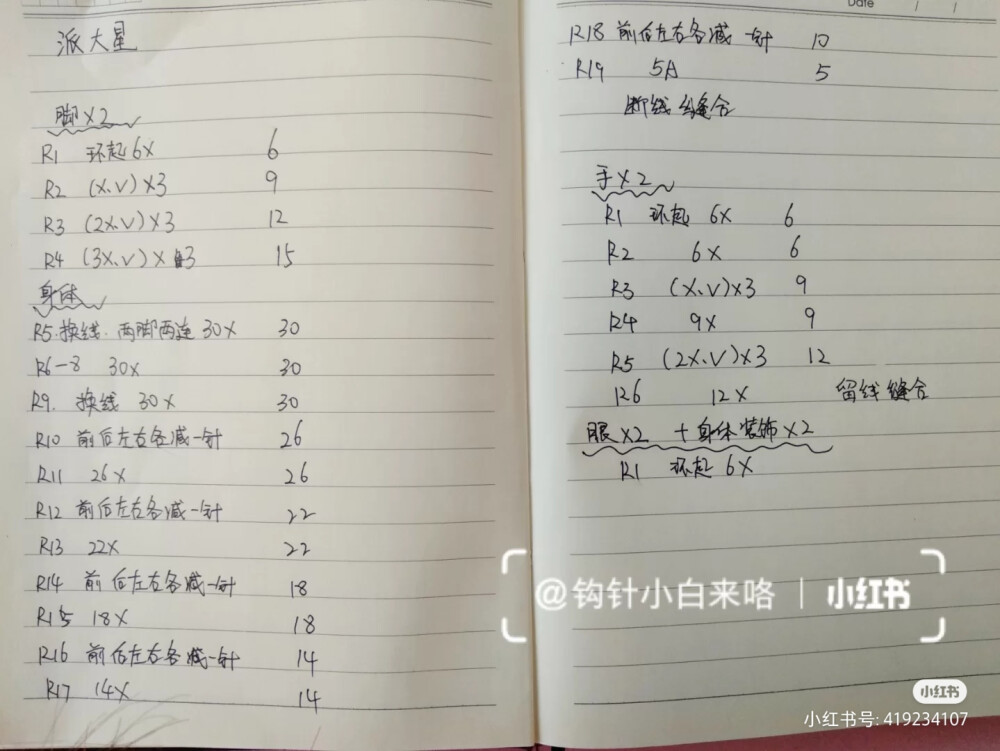 派大星
脚×2
R1 环起6X 6
R2 (X、V)×3 9
R3 (2X、V)×3 12
R4 (3X、V)×3 15
身体
R5.换线.两脚两连30X 30
R6-8 30X 30
R9. 换线 30X 30
R10 前后左右各减一针 26
R11 26X 26
R12 前后左右各减一针 22
R13 22X 22
R14 前后左右各减一针 18
R15 18X 18
R16 前后左右各减一针 14
R17 14X 14
Date / /
R18 前后左右各减一针 10
R19 5A 5
断线缝合
手×2
R1 环起 6X 6
R2 6X 6
R3 (X、V)×3 9
R4 9X 9
R5 (2X、V)×3 12
R6 12X 留线缝合
眼×2 +身体装饰×2
R1 环起 6X
@钩针小白来咯 | 小红书
小红书
小红书号: 419234107